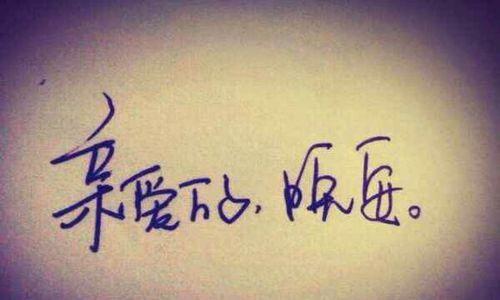 亲爱的,晚安。